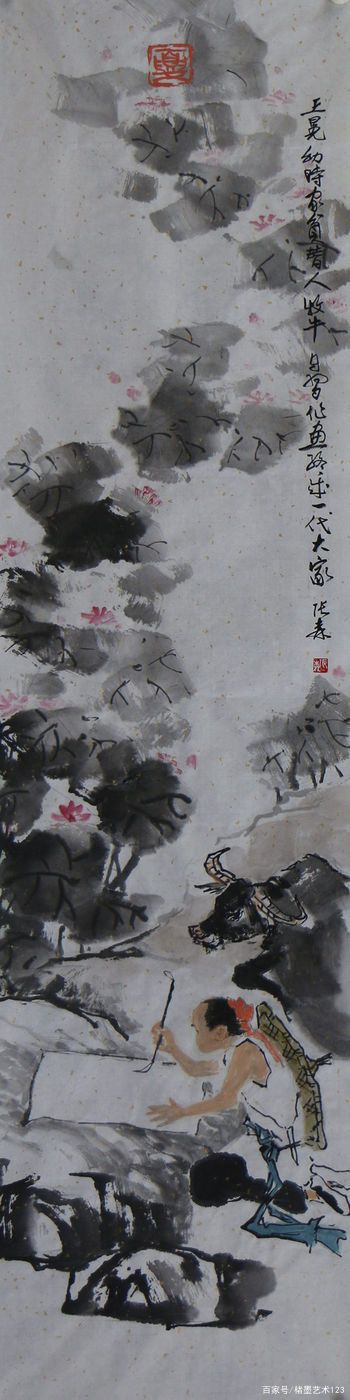 王冕幼時家貧替人牧牛自習作画終成一代大家 张森
百家号/楮墨艺术123